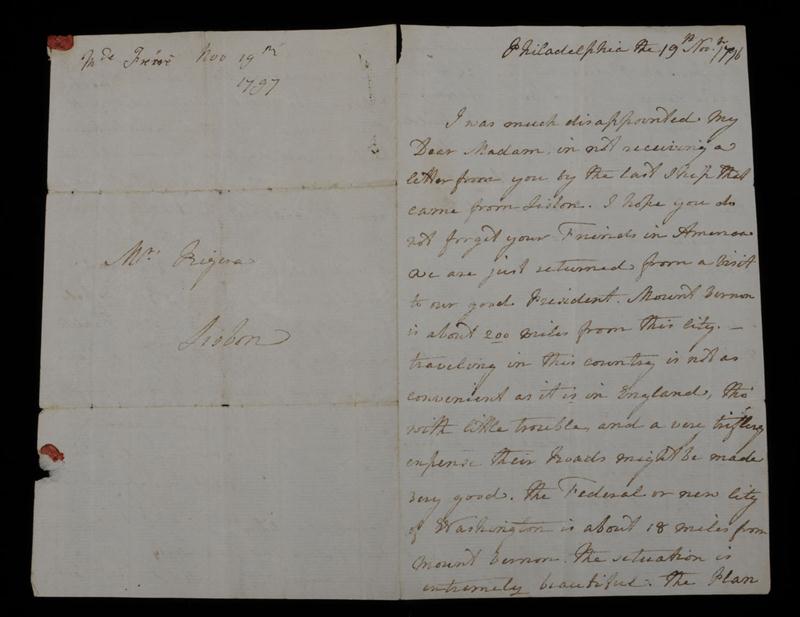 Mde Frere Nov 19th
1797
Mrs Frigera
Lisbon
Philadelphia the 19th Novr 1796
I was much disappointed My
Dear Madam, in not receiving a
letter from you by the last Ship that
came from Lisbon. I hope you do
not forget your Friends in America
we are just returned from a visit
to our good President. Mount Vernon
is about 200 miles from this city. —
traveling in this country is not as
convenient as it is in England, tho'
with little trouble, and a very trifling
expense their Roads might be made
very good. The Federal or new city
of Washington is about 18 miles from
Mount Vernon. The situation is
extremely beautiful. The Plan